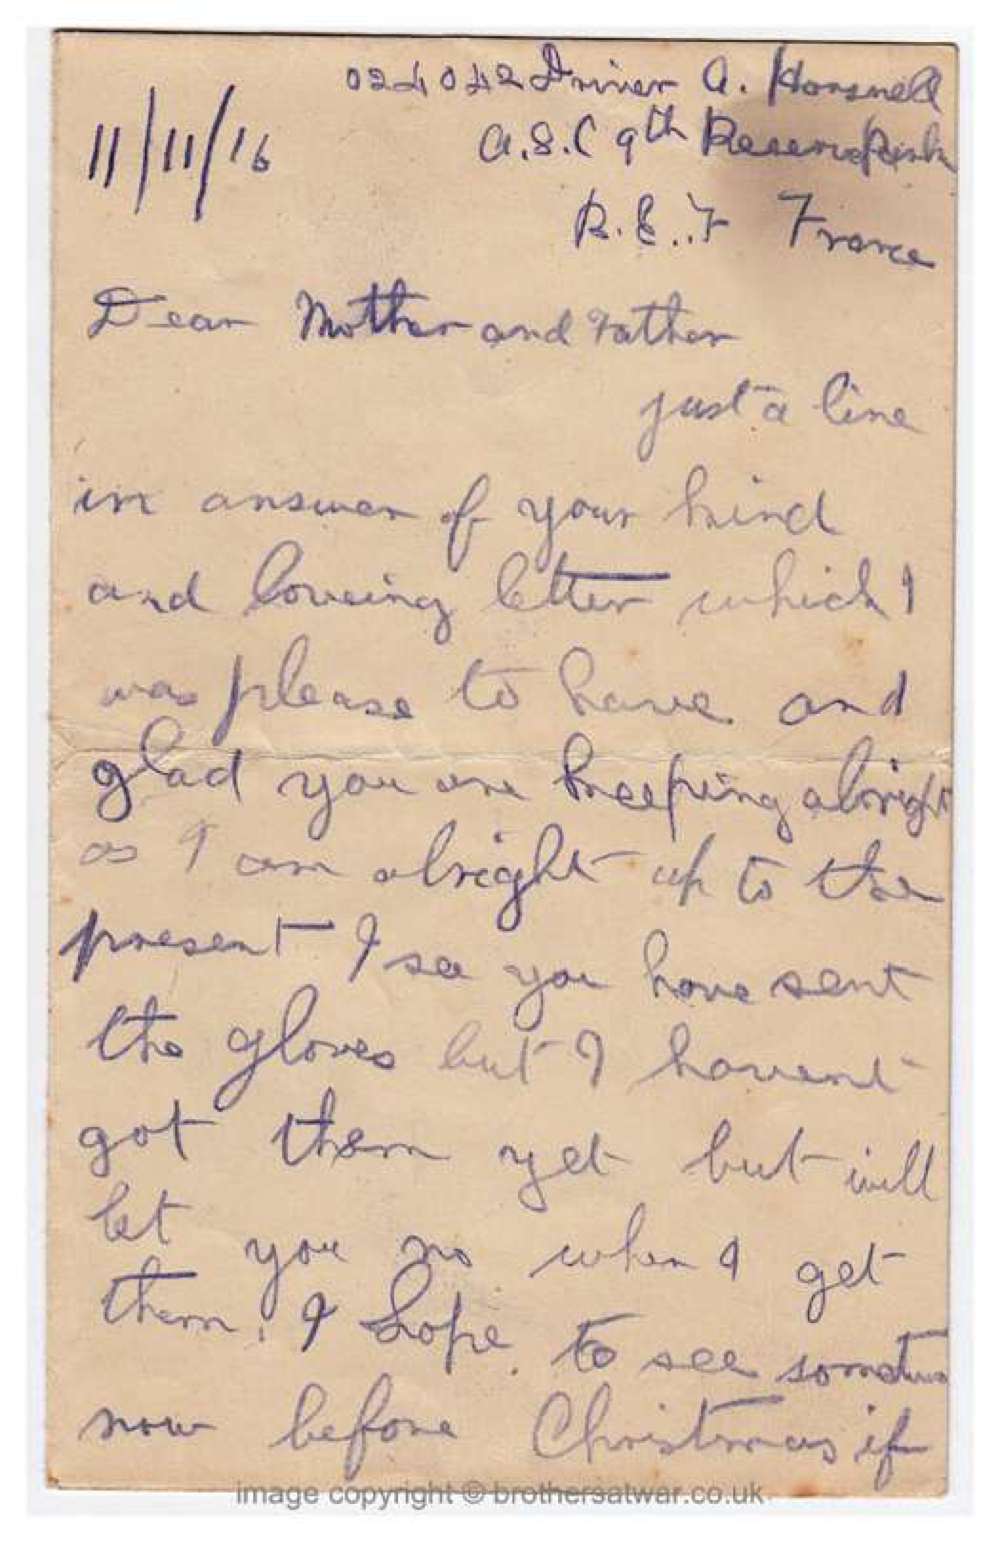 024042 Driver A. Horsnell
11/11/16
A.S.C 9th Reserve Park
B.E.F France
Dear Mother and Father
just a line
in answer of your kind
and loveing letter which I
was please to have and
glad you are keeping alright
as I am alright up to the
present I see you have sent
the gloves but I havent
got them yet but will
let you no when I get
them, I hope to see
now before Christmas if
image copyright © brothersatwar.co.uk